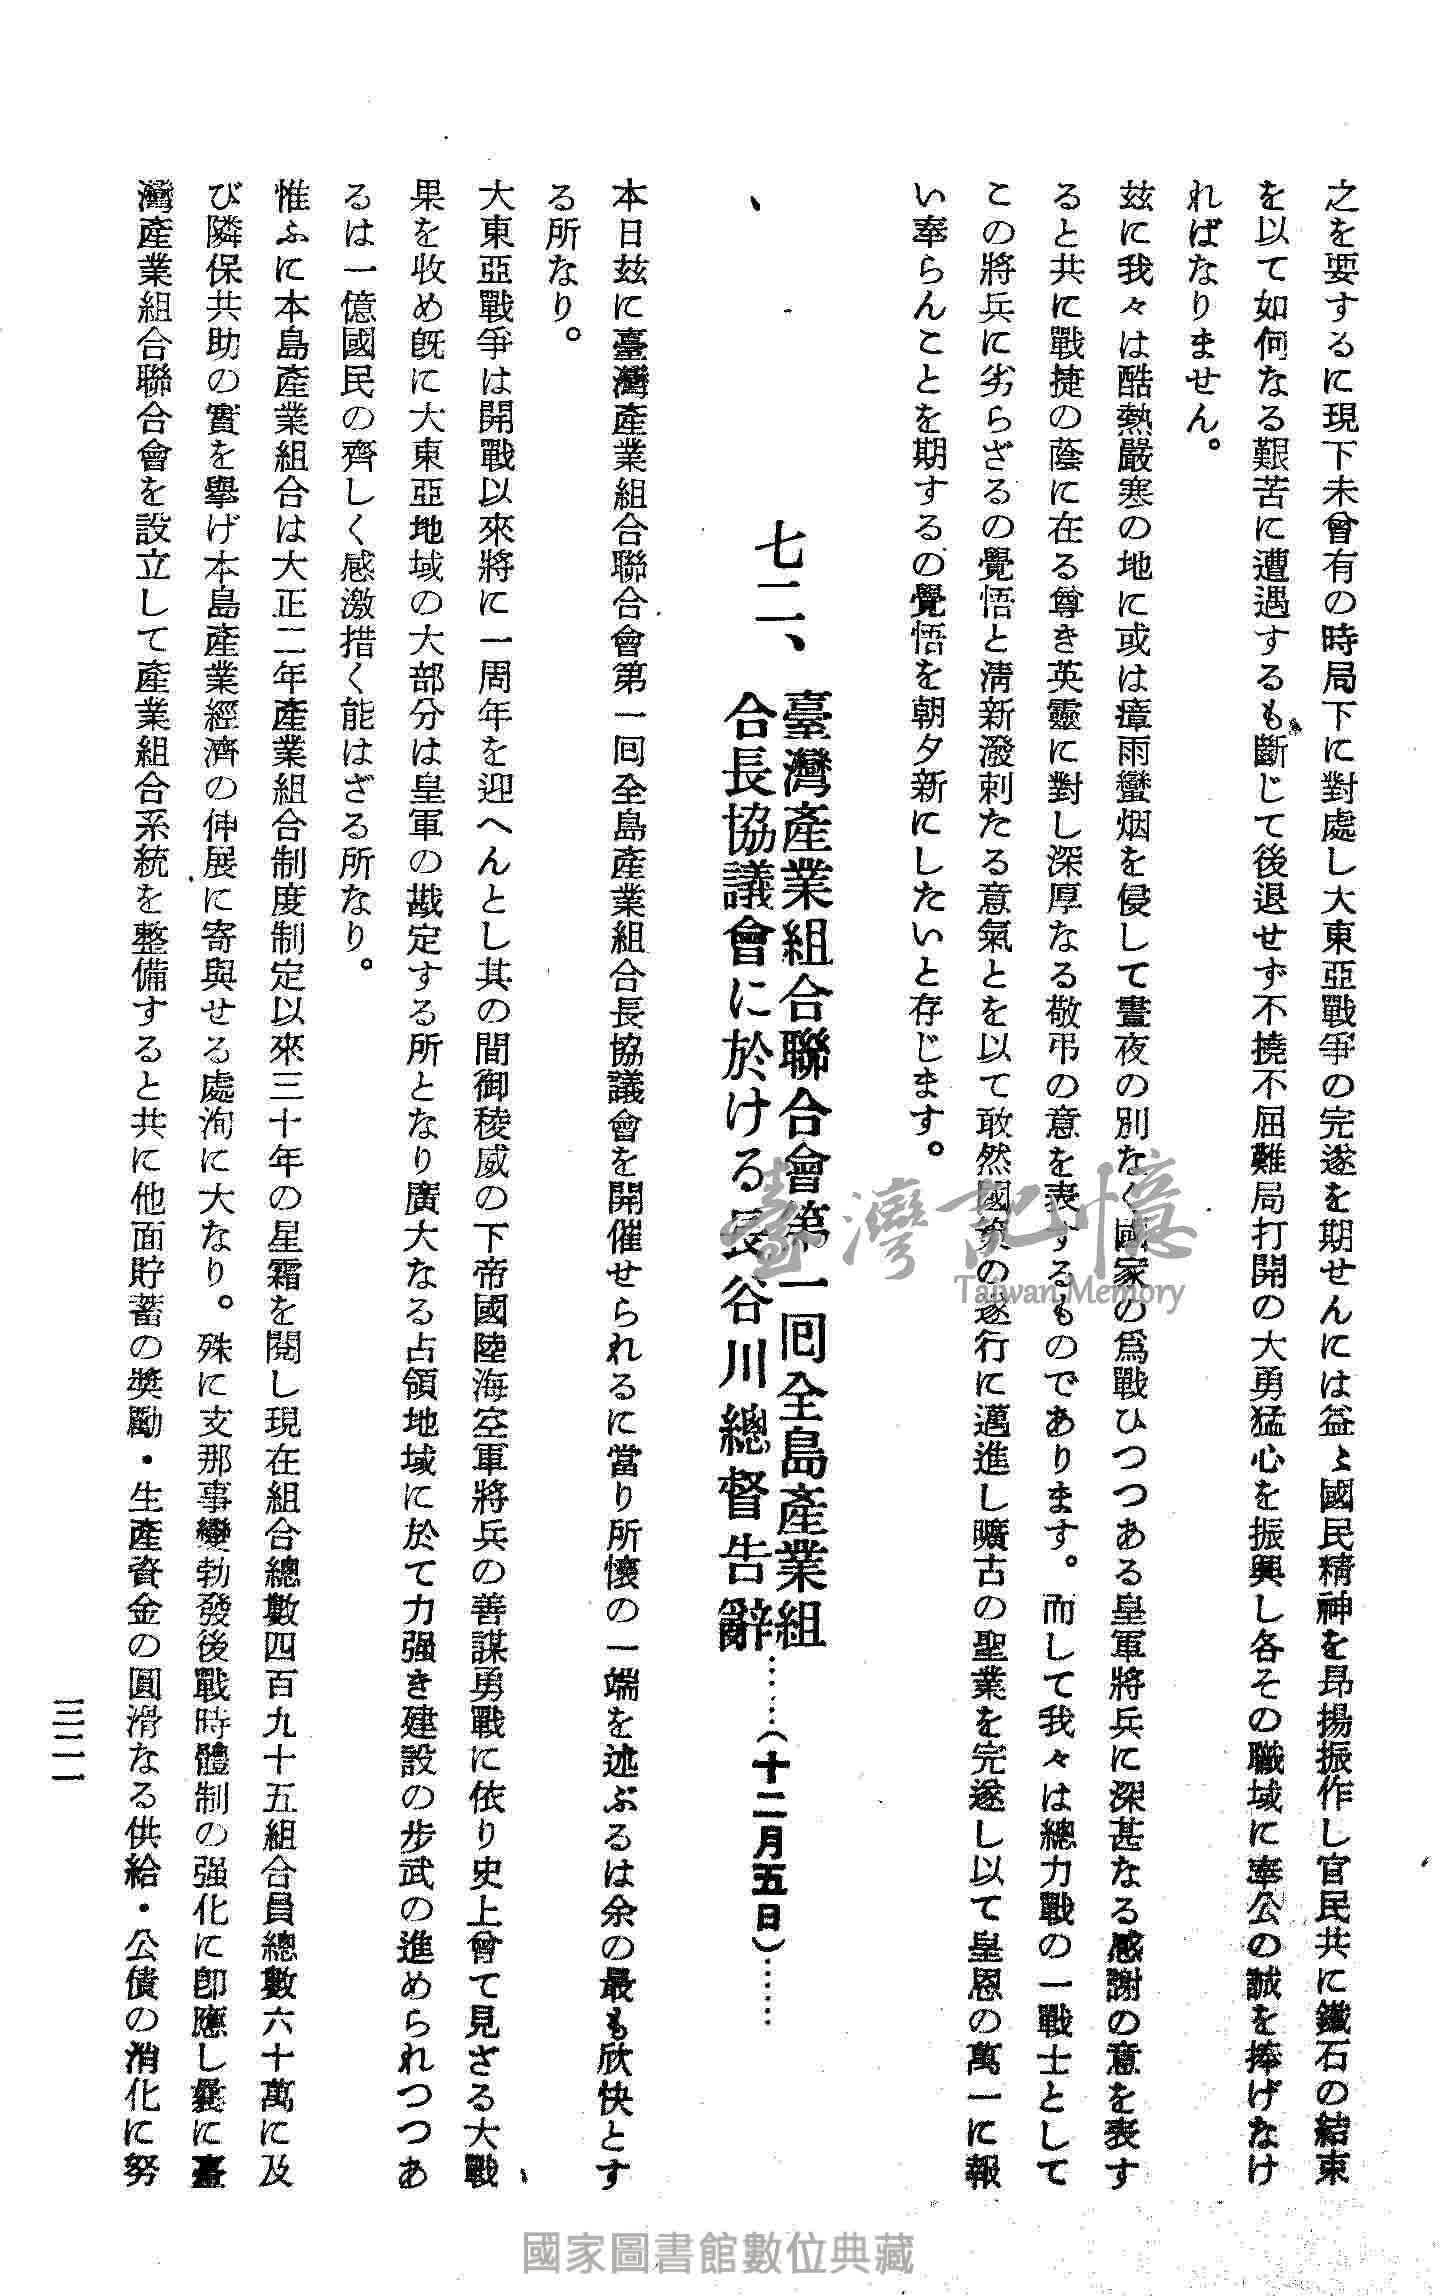 之を要するに現下未曾有の時局下に對處し大東亞戰爭の完遂を期せんには益〻國民精神を昂揚振作し官民共に鐵石の結束
を以て如何なる艱苦に遭遇するも斷じて後退せず不撓不屈難局打開の大勇猛心を振興し各その職域に奉公の誠を捧げなけ
ればなりません。
玆に我々は酷熱嚴寒の地に或は瘴雨蠻烟を侵して晝夜の別なく國家の爲戰ひつつある皇軍將兵に深甚なる感謝の意を表す
ると共に戰捷の蔭に在る尊き英靈に對し深厚なる敬弔の意を表するものであります。而して我々は總力戰の一戰士として
この將兵に劣らざるの覺悟と淸新潑剌たる意氣とを以て敢然國策の遂行に邁進し曠古の聖業を完遂し以て皇恩の萬一に報
い奉らんことを期するの覺悟を朝夕新にしたいと存じます。
七二、臺灣產業組合聯合會第一回全島產業組
合長協議會に於ける長谷川總督告辭……(十二月五日)……
本日玆に臺灣產業組合聯合會第一回全島產業組合長協議會を開催せられるに當り所懷の一端を述ぶるは余の最も欣快とす
る所なり。
大東亞戰爭は開戰以來將に一周年を迎へんとし其の間御稜威の下帝國陸海空軍將兵の善謀勇戰に依り史上曾て見ざる大戰
果を收め旣に大東亞地域の大部分は皇軍の戡定する所となり廣大なる占領地域に於て力强き建設の步武の進められつつあ
るは一億國民の齊しく感激措く能はざる所なり。
惟ふに本島產業組合は大正二年產業組合制度制定以來三十年の星霜を閱し現在組合總數四百九十五組合員總數六十萬に及
び隣保共助の實を擧げ本島產業經濟の伸展に寄與せる處洵に大なり。殊に支那事變勃發後戰時體制の强化に卽應し曩に臺
灣產業組合聯合會を設立して產業組合系統を整備すると共に他面貯蓄の獎勵・生產資金の圓滑なる供給・公債の消化に努
三二一
臺灣記憶
Taiwan Memory
國家圖書館數位典藏